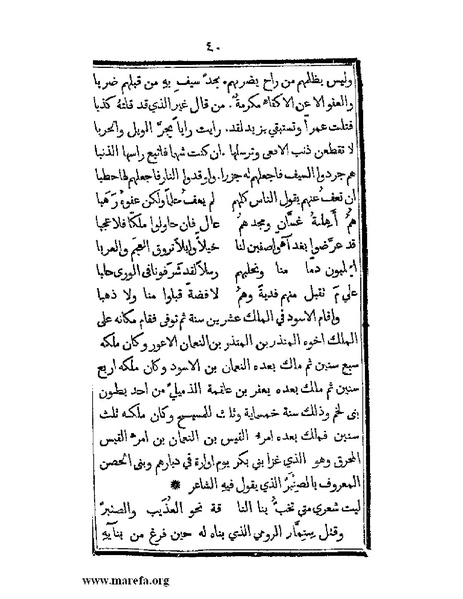 ٤٠
وليس يظلمهم من راح يضربهم . بجد سيف به من قبلهم ضربا
والعفو الا عن الاكفاء مكرمة . من قال غير الذي قد قلته كذبا
قتلت عمرا وتستبقي يزيد لقد . رايت رايا يجر الويل والحربا
لا تقطعن ذنب الافعى وترسلها . ان كنت شهما فاتبع راسها الذنبا
هم جردوا السيف فاجعلهم له جزرا . واوقدوا النار فاجعلهم لها حطبا
ان تعف عنهم يقول الناس كلهم لم يعف حلما ولكن عفوه رهبا
هم أهلة غسان ومجدهم عال فان حاولوا ملكا فلا عجبا
قد عرضوا بفداء واصفين لنا خيلا وابلا تروق العجم والعربا
ايحلبون دما منا ونحلبهم رسلا لقد شرفونا في الورى حلبا
على م تقبل منهم فدية وهم لا فضة قبلوا منا ولا ذهبا
واقام الاسود في الملك عشرين سنة ثم توفى فقام مكانه على
الملك اخوه المنذر بن المنذر بن النعمان الاعور وكان ملكه
سبع سنين ثم ملك بعده النعمان بن الاسود وكان ملكه اربع
سنين ثم ملك بعده يعفر بن علقمة الذميلي من احد بطون
بنى لخم وذلك سنة خمسماية وثلث للمسيح وكان ملكه ثلث
سنين فملك بعده امرء القيس بن النعمان بن امرء القيس
المحرق وهو الذي غزا بني بكر يوم اوارة في ديارهم وبنى الحصن
المعروف بالصنبر الذي يقول فيه الشاعر *
ليت شعري متى تخب بنا النا قة نحو العذيب والصنبر
وقتل سنمار الرومي الذي بناه له حين فرغ من بنآيه
www.marefa.org